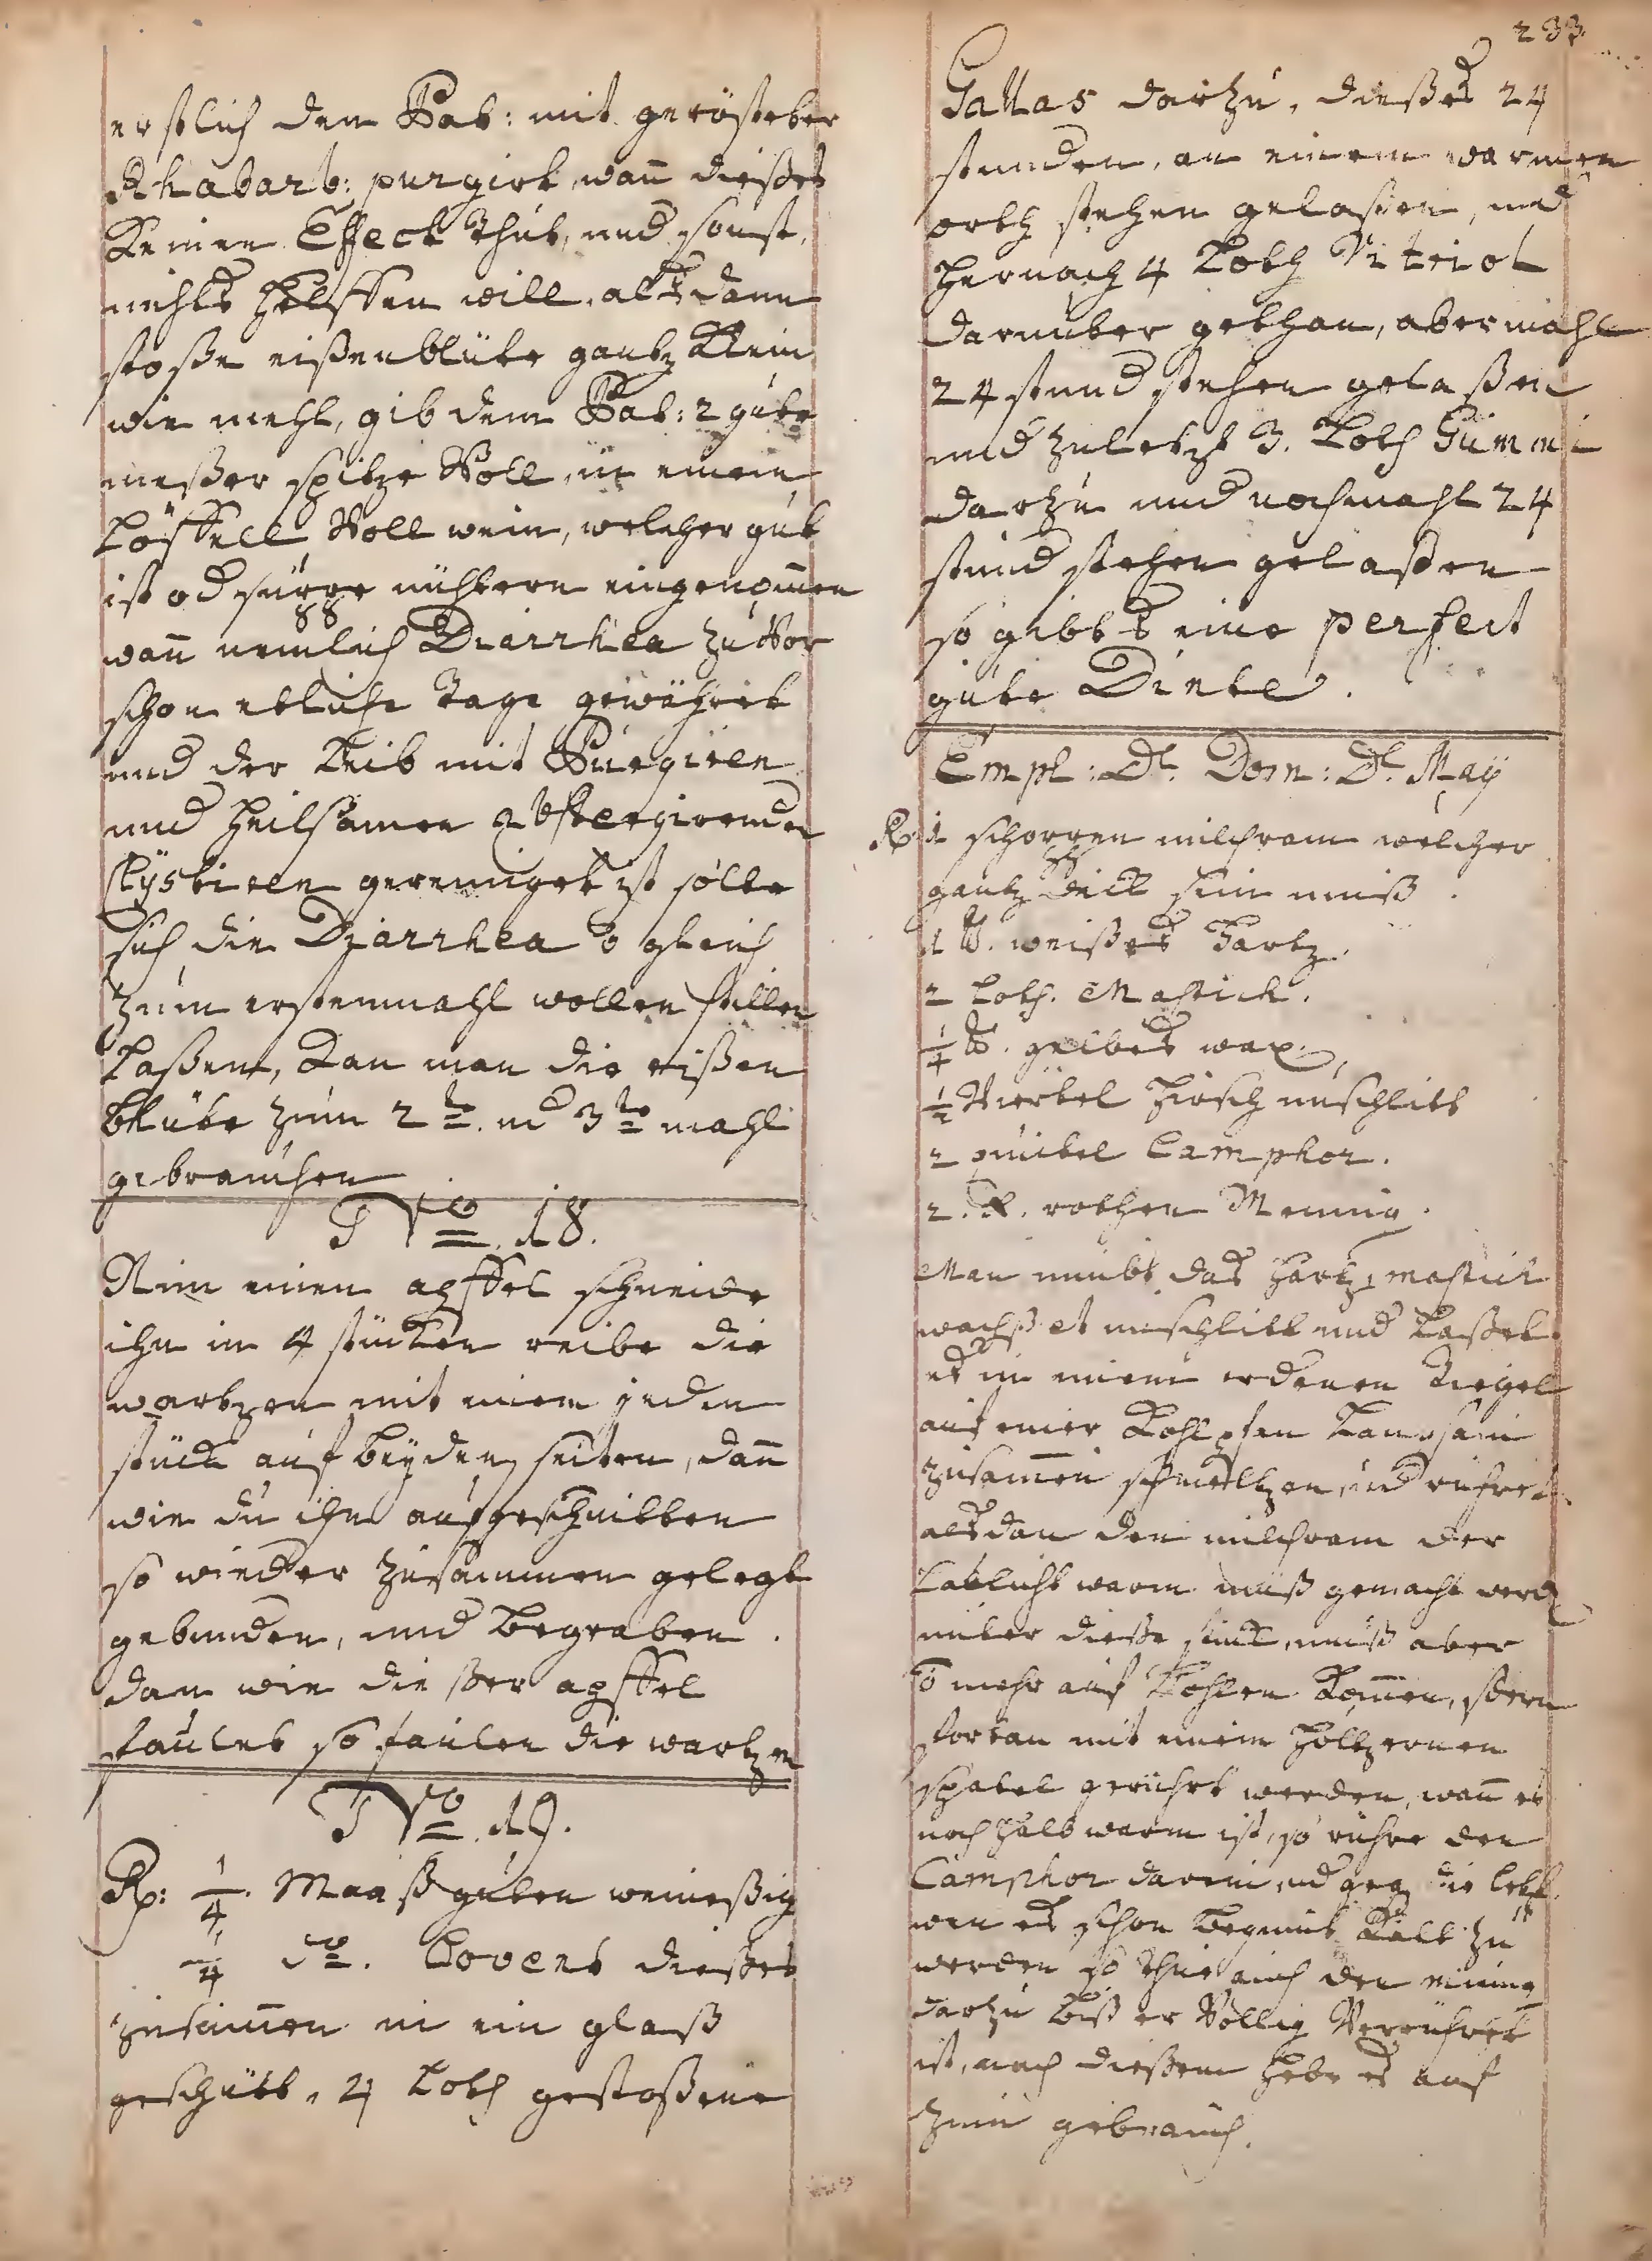 233
erstlich dem Pat: mit gerösteter
Rhabarb: purgirt, wan̄ dießes
Keinen Effect thut, und sonst
nichts helffen will, alsdann
stoße eißenblüte gantz Klein
wie mehl, gib dem Pat: 2 gute
meßer spitze Voll, in einem
Löffell Voll wein, welcher gut
ist od nüchtern eingenom̄en
wan̄ nemlich Diarrhea zuVor
schon etliche Tage gewähret
und der Leib mit Purgiren
und heilsamen abstergirenden
Clystiren gereiniget ist solte
sich die Diarrhea 0 gleich
zum erstenmahl wollen stillen
Laßen, Kan man die eißen
blüte zum 2te. ud 3te mahl
gebrauchen
No. 18.
Nim einen apffel schneide
ihn in 4 stücken reibe die
wartzen mit einem jeden
stück auf beyden seiten, dan̄
wie du ihn aufgeschnitten
so wieder zusammen gelegt
gebunden, und begraben.
dan wie dießer apffel
faulet so faulen die wartzen
No. 19.
Rp: 1/4. Maaß guten weineßig
1/4 do. Covent dießes
zusam̄en in ein glaß
geschütt, 4 Loth gestoßene
Gallas darzu, dießes 24
stunden, an einem warmen
orth stehen gelaßen, und
hernach 4 Loth Vitriol
darunter gethan, abermahl
24 stund stehen gelaßen
und zuletzt 3. Loth Gummi
darzu und nochmahl 24
stund stehen gelaßen
so gibts eine perfect
gute Dinte.
Empl: Dn. Dom: Dr. May
Rp. 1 schoppen milchram welcher
gantz dick sein muß.
1 ℔. weißes Hartz.
2 Loth. Mastick.
1/4 ℔. gelbes wax.
1/2 Viertel Hirsch unschlitt
2 quintel Camphor.
2. rothen Mennig.
Man nimbt das hartz, mastick
wachß et unschlitt und Laßet
es in einem erdenen Tiegel
auf einer Kohlpfan Langsam
zusam̄en schmeltzen, und rühret
alsdan den milchram der
Lablicht warm muß gemacht werd
unter dieße stück, muß aber
0 mehr auf Kohlen Kom̄en, sdern
fortan mit einem höltzernen
spatel gerührt werden, wan̄ es
noch halb warm ist, so rühre den
Camphor darein, ud geg die letzt
wen es schon beginnt Kalt zu
werden so thue auch den minig
darzu biß er Völlig Verrühret
ist, nach dießem hebe es auf
zum gebrauch.